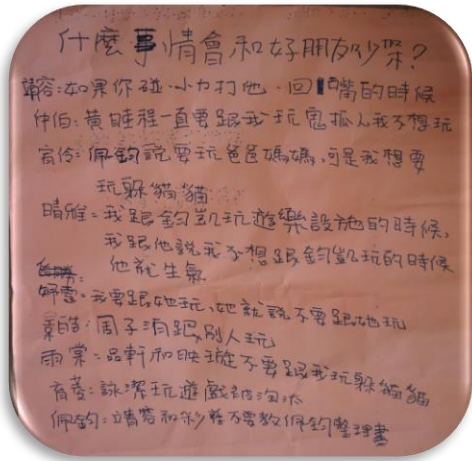 什麼事情會和好朋友吵架?
靖容:如果你碰、小力打他、回嘴的時候
仲伯:黃睦程一直要跟我玩鬼抓人我不想玩
宥伶:佩鈞說要玩爸爸媽媽,可是我想要
玩躲貓貓
晴雅:我跟鈞凱玩遊樂設施的時候,
我跟他說我不想跟鈞凱玩的時候
他就生氣
妤雲:我要跟她玩,她就說不要跟她玩
皓:周子洧跟別人玩
雨棠:品軒和映璇不要跟我玩躲貓貓
宥蓁:詠潔玩遊戲被淘汰
佩鈞:靖容和 不要教佩鈞整理書